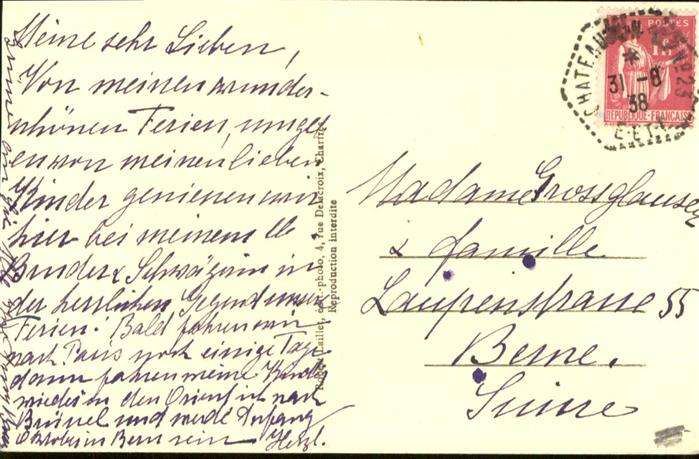 Meine sehr Lieben,
Von meinen wunder-
schönen Ferien, umge-
en von meinen lieben
Kinder geniessen wir
hier bei meinem lb.
Bruder & Schwägerin in
der herrlichen Gegend unsere
Ferien. Bald fahren wir
nach Paris noch einige Tage
dann fahren meine Kinder
wieder in den Orient ich nach
Brüssel und werde Anfang
Oktober in Bern sein Herzl.
4, rue Delacroix, Chartres
Reproduction interdite
POSTES
1F
RÉPUBLIQUE FRANÇAISE
31-8
38
E-ET-L
Madame Grossglauser
& famille
Laupenstrasse 55
Berne.
Suisse